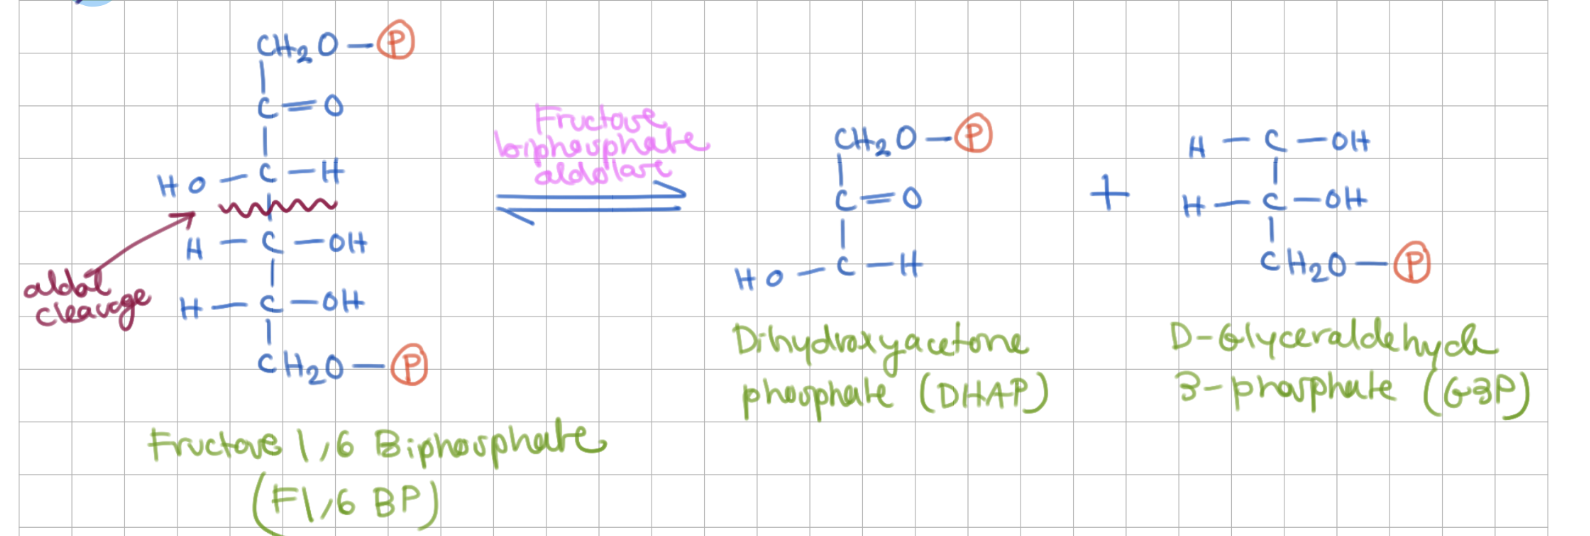 CH₂O — P
C = O
HO — C — H
H — C — OH
H — C — OH
CH₂O — P
aldol
cleavage
Fructose 1,6 Biphosphate
(F1,6 BP)
Fructose
biphosphate
aldolase
CH₂O — P
C = O
HO — C — H
Dihydroxyacetone
phosphate (DHAP)
+
H — C — OH
H — C — OH
CH₂O — P
D-Glyceraldehyde
3-phosphate (G3P)